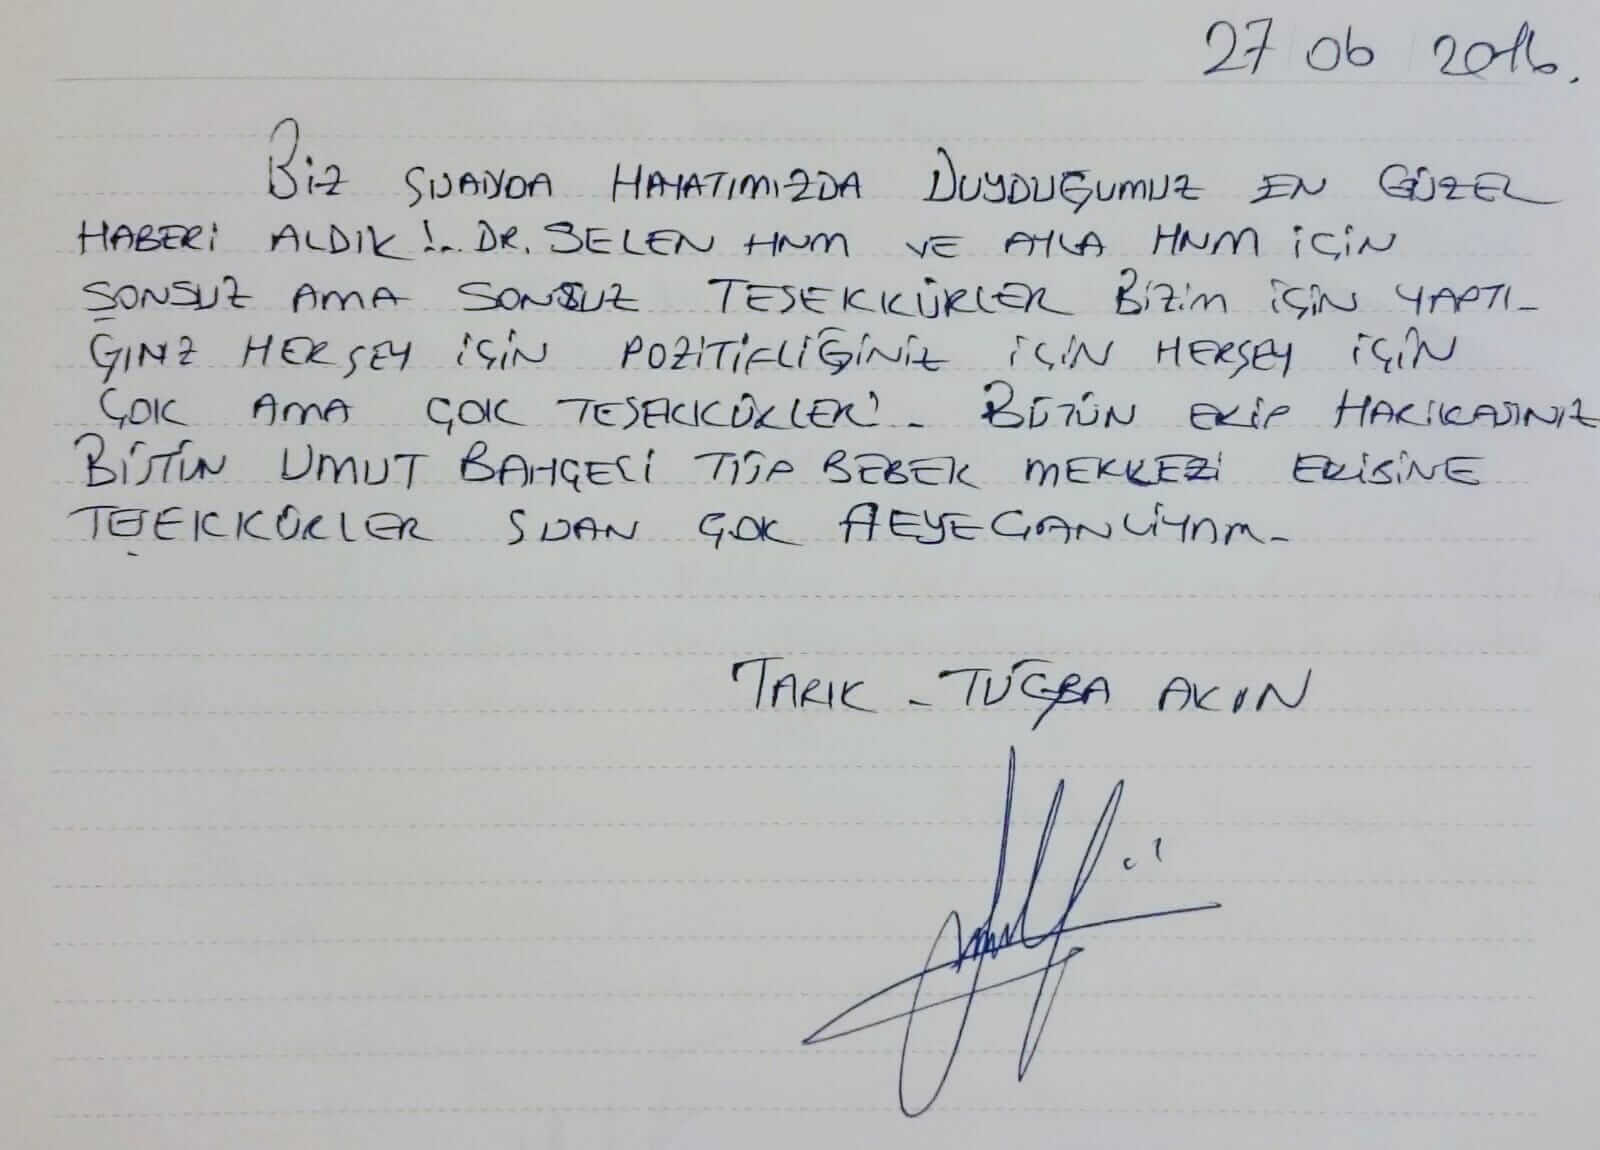 27 06 2016.
BİZ ŞUANDA HAYATIMIZDA DUYDUĞUMUZ EN GÜZEL
HABERİ ALDIK!.. DR. SELEN HNM VE AYLA HNM İÇİN
SONSUZ AMA SONSUZ TEŞEKKÜRLER BİZİM İÇİN YAPTI-
ĞINIZ HERŞEY İÇİN POZİTİFLİĞİNİZ İÇİN HERŞEY İÇİN
ÇOK AMA ÇOK TEŞEKKÜRLER! - BÜTÜN EKİP HARİKASINIZ
BÜTÜN UMUT BAHÇESİ TÜP BEBEK MERKEZİ EKİBİNE
TEŞEKKÜRLER ŞUAN ÇOK HEYEGANLIYAM-
TARIK - TUĞBA AKIN